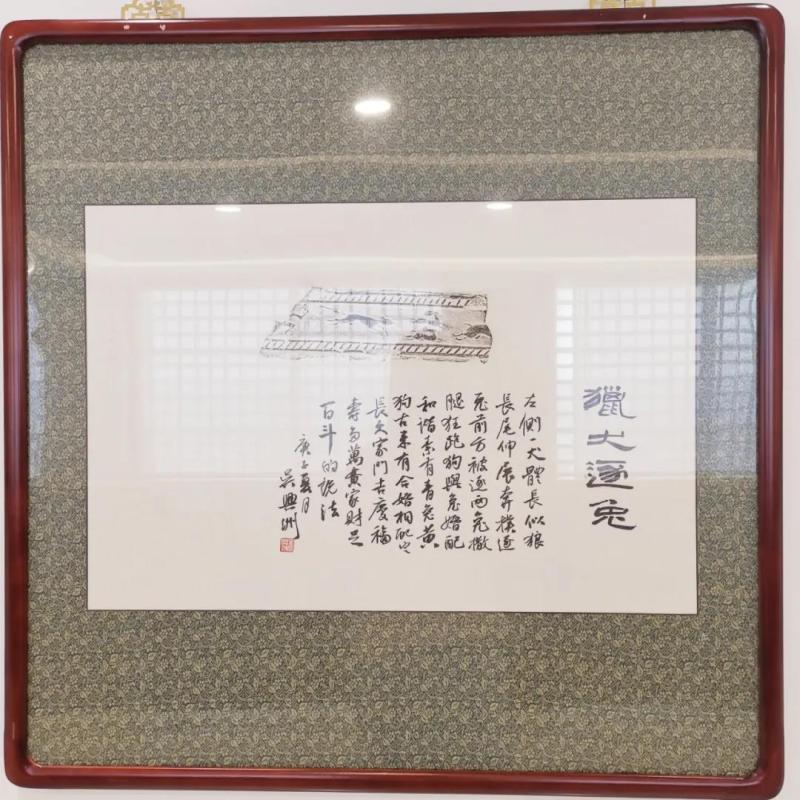 獵犬逐兔
左側一犬體長似狼
長尾伸展奔撲逐
兔前方被逐兩兔撒
腿狂跑狗與兔婚配
和谐素有青兔黄
狗古来有合婚相配它
長久家門吉慶福
壽多萬貴家財足
百斗的说法
庚子夏月
吳興洲